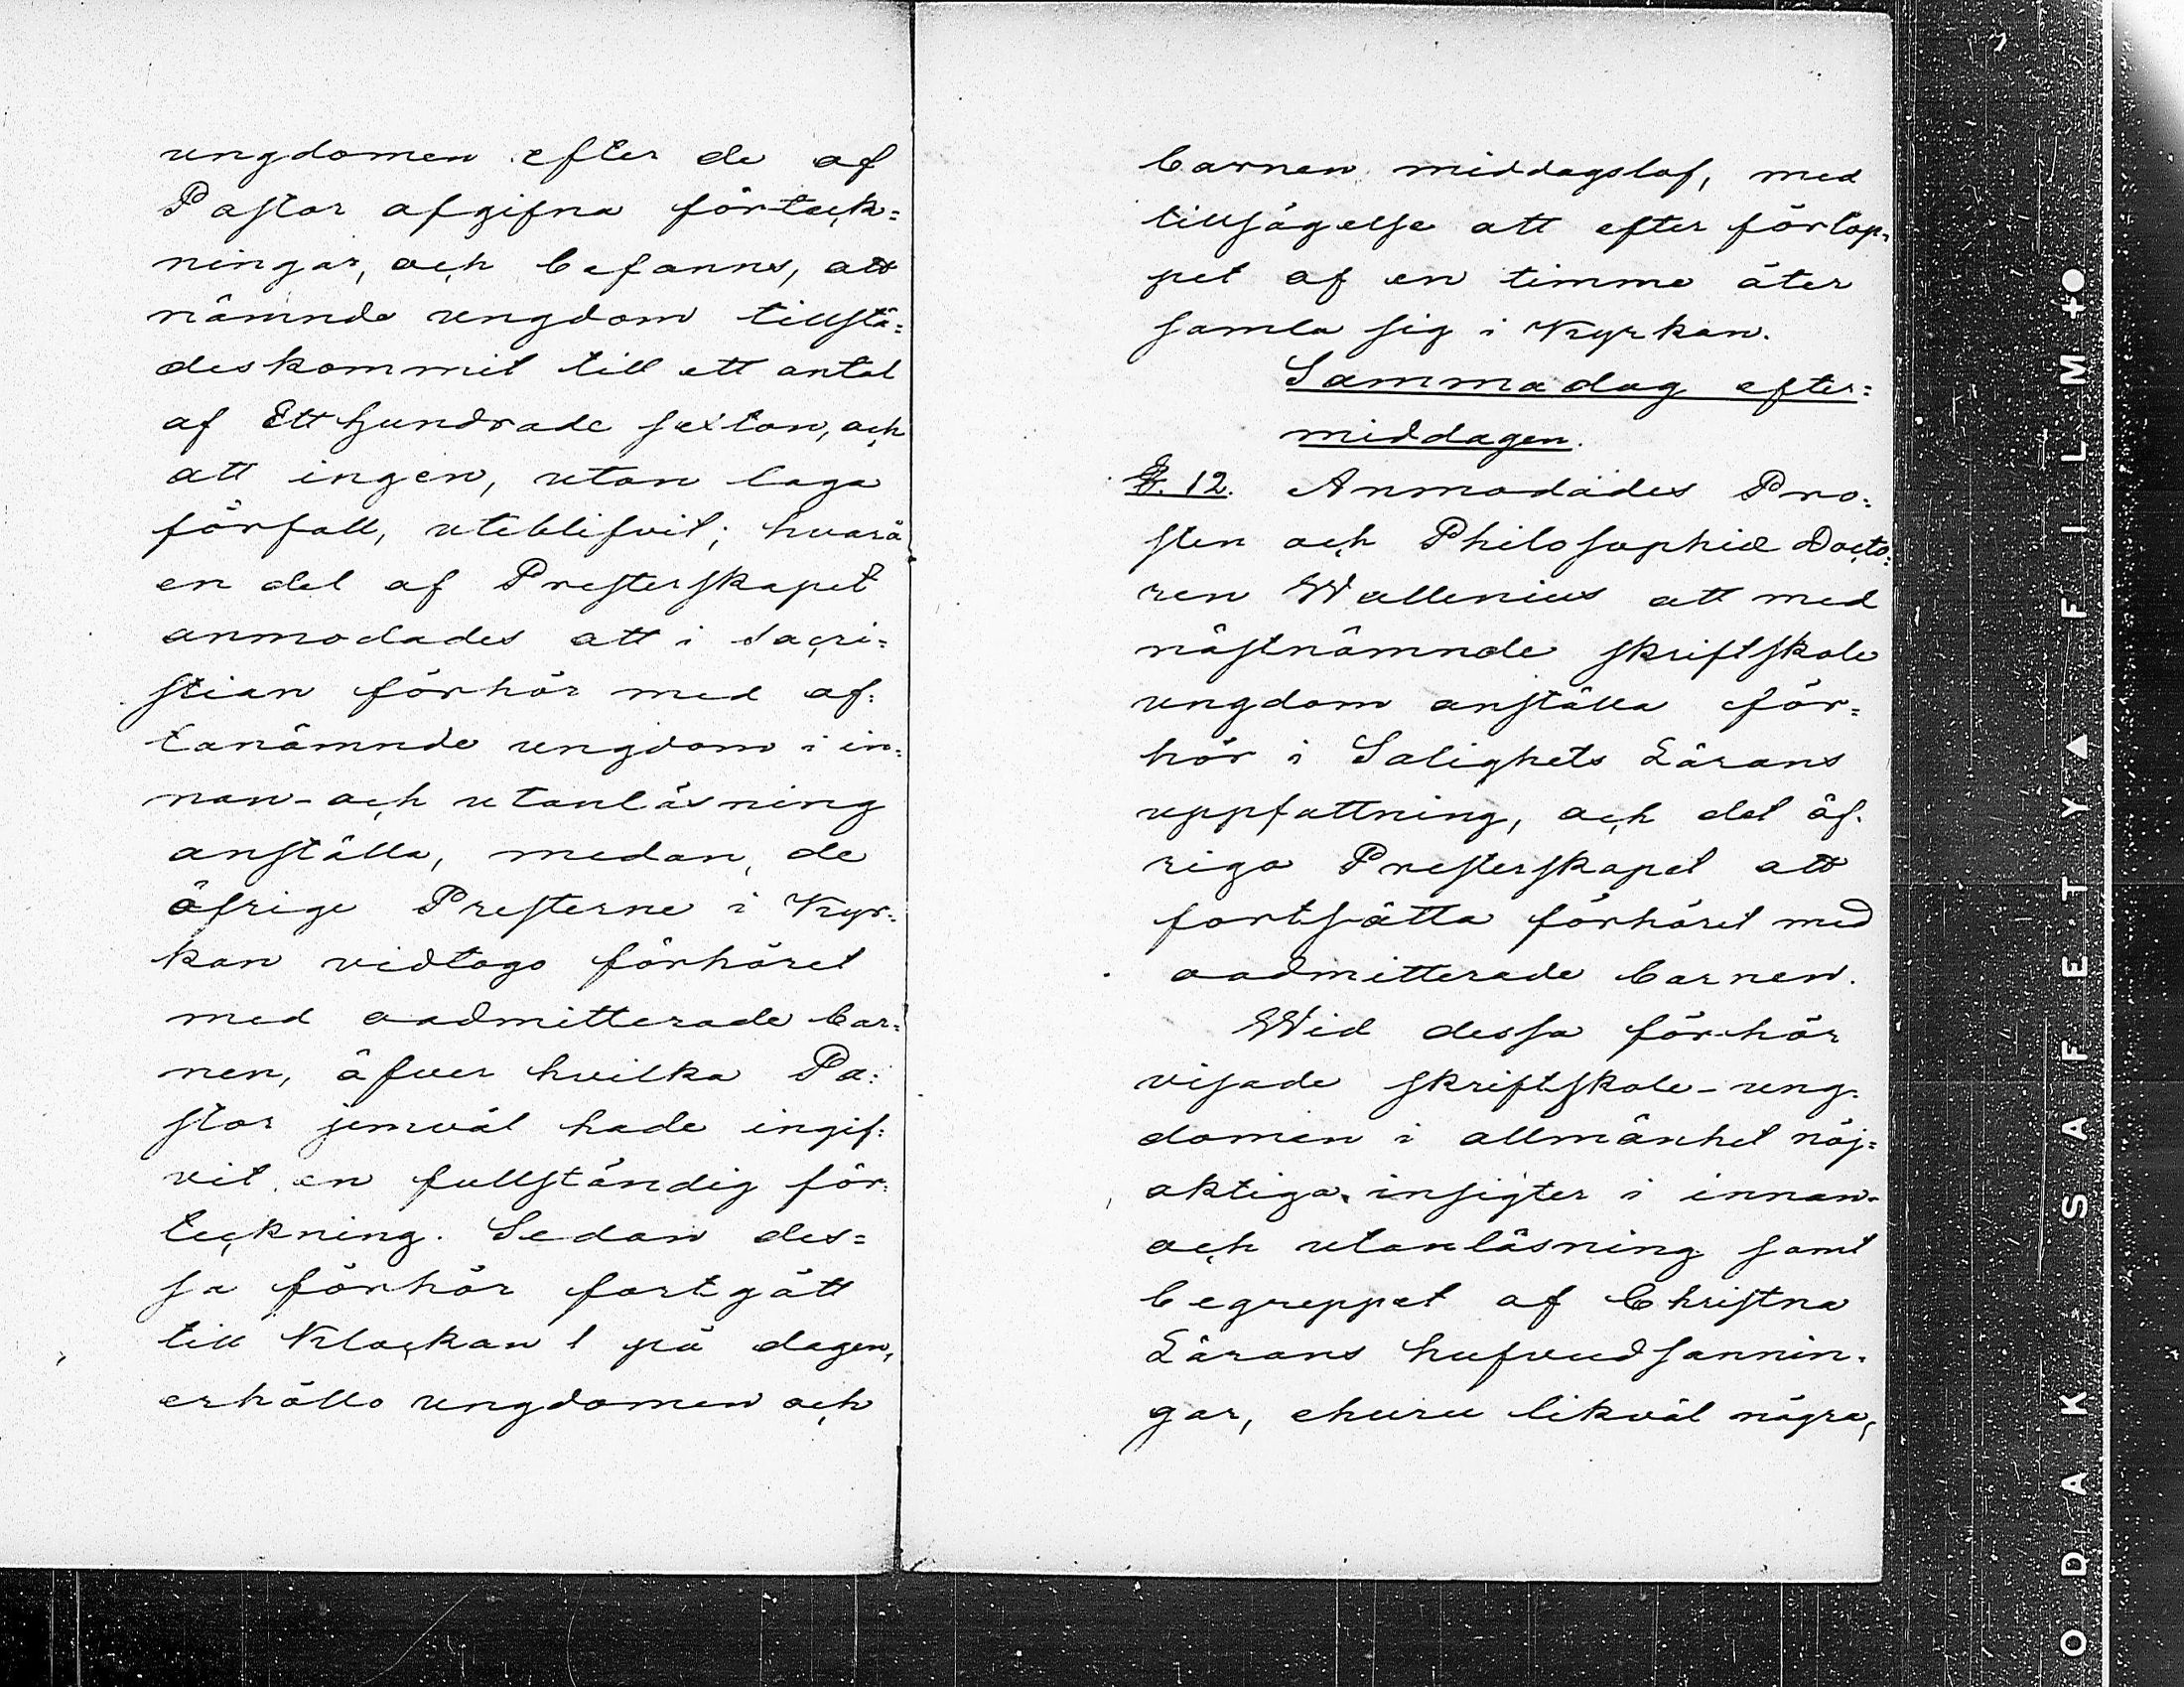 ungdomen efter de af
Pastor afgifna förteck=
ningar, och befanns, att
nämnde ungdom tillstä=
deskommit till ett antal
af Ett hundrade sexton, och
att ingen, utan laga
förfall, uteblifvit; hvarå
en del af Presterskapet
anmodades att i Sacri=
stian förhör med of=
tanämnde ungdom i in=
nan- och utanläsning
anställa, medan de
öfrige Presterne i Kyr=
kan vidtogo förhöret
med oadmitterade bar=
nen, öfver hvilka Pa=
stor jemväl hade ingif=
vit en fullständig för=
teckning. Sedan des=
sa förhör fortgått
till Klockan 1 på dagen,
erhöllo ungdomen och
barnen middagslof, med
tillsägelse att efter förlop=
pet af en timme åter
samla sig i Kyrkan.
Samma dag efter=
middagen.
§. 12. Anmodades Pro=
sten och Philosophiæ Docto=
ren Wallenius att med
nästnämnde skriftskole
ungdom anställa för=
hör i Salighets Lärans
uppfattning, och det öf=
riga Presterskapet att
fortsätta förhöret med
oadmitterade barnen.
Wid dessa förhör
visade skriftskole-ung=
domen i allmänhet nöj=
aktiga insigter i innan-
och utanläsning samt
begreppet af Christna
Lärans hufvudsannin=
gar, ehuru likväl några,
ODAK SAFETY▲FILM